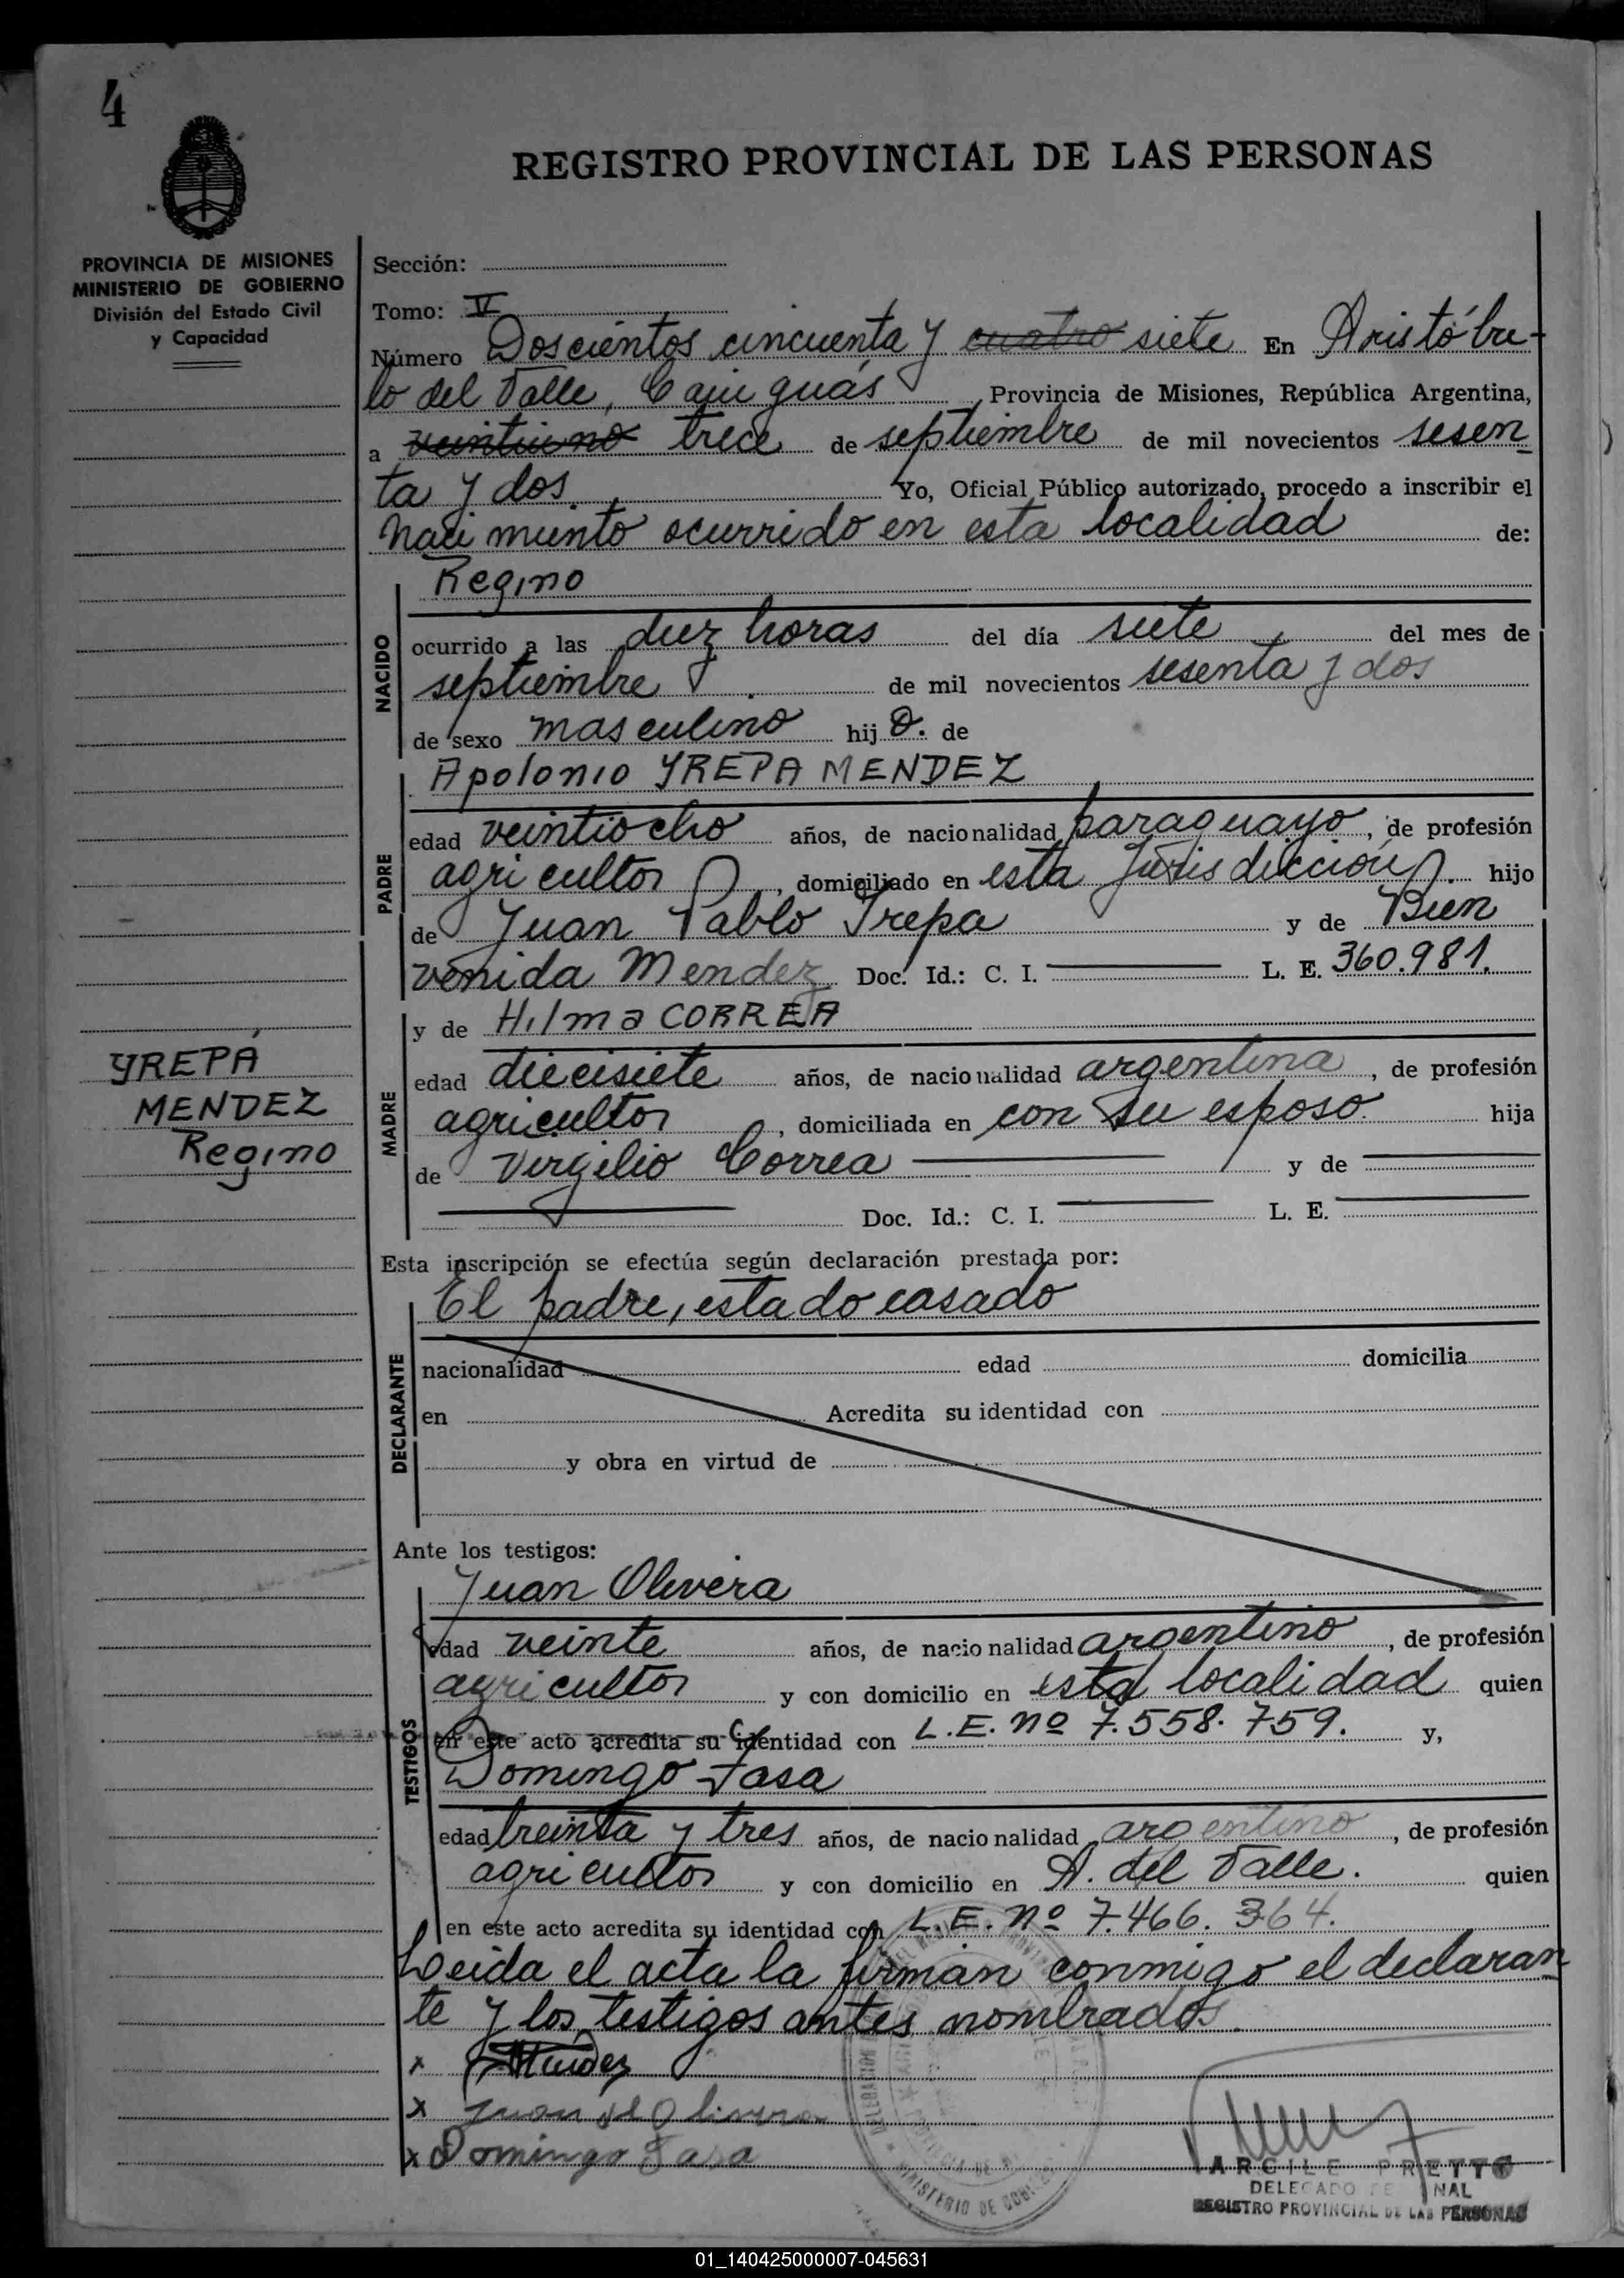 4
REGISTRO PROVINCIAL DE LAS PERSONAS
PROVINCIA DE MISIONES
MINISTERIO DE GOBIERNO
División del Estado Civil
y Capacidad
Sección:
Tomo: V
Número Doscientos cincuenta y cuatro siete En Aristóbu-
lo del Valle, Cainguás, Provincia de Misiones, República Argentina,
a veintiuno trece de septiembre de mil novecientos sesen
ta y dos Yo, Oficial Público autorizado, procedo a inscribir el
nacimiento ocurrido en esta localidad de:
NACIDO
Regino
ocurrido a las diez horas del día siete del mes de
septiembre de mil novecientos sesenta y dos
de sexo masculino hijo. de
PADRE
Apolonio YREPA MENDEZ
edad veintiocho años, de nacionalidad paraguayo, de profesión
agricultor, domiciliado en esta Jurisdicción. hijo
de Juan Pablo Yrepa y de Bien
venida Mendez Doc. Id.: C. I. L. E. 360.981.
MADRE
y de Hilma CORREA
edad diecisiete años, de nacionalidad argentina, de profesión
agricultor, domiciliada en con su esposo. hija
de Virgilio Correa y de
Doc. Id.: C. I. L. E.
YREPÁ
MENDEZ
Regino
Esta inscripción se efectúa según declaración prestada por:
DECLARANTE
El padre, estado casado
nacionalidad edad domicilia
en Acredita su identidad con
y obra en virtud de
Ante los testigos:
TESTIGOS
Juan Olivera
edad veinte años, de nacionalidad argentino, de profesión
agricultor y con domicilio en esta localidad quien
en este acto acredita su identidad con L.E. nº 7.558.759. y,
Domingo Fasa
edad treinta y tres años, de nacionalidad argentino, de profesión
agricultor y con domicilio en A. del Valle. quien
en este acto acredita su identidad con L.E. nº 7.466.364.
Leida el acta la firman conmigo el declaran
te y los testigos antes nombrados.
x Mendez
x Juan Olivera
x Domingo Fasa
MINISTERIO DE GOBIERNO
ARCILE PRETTO
REGISTRO PROVINCIAL DE LAS PERSONAS
01_140425000007-045631